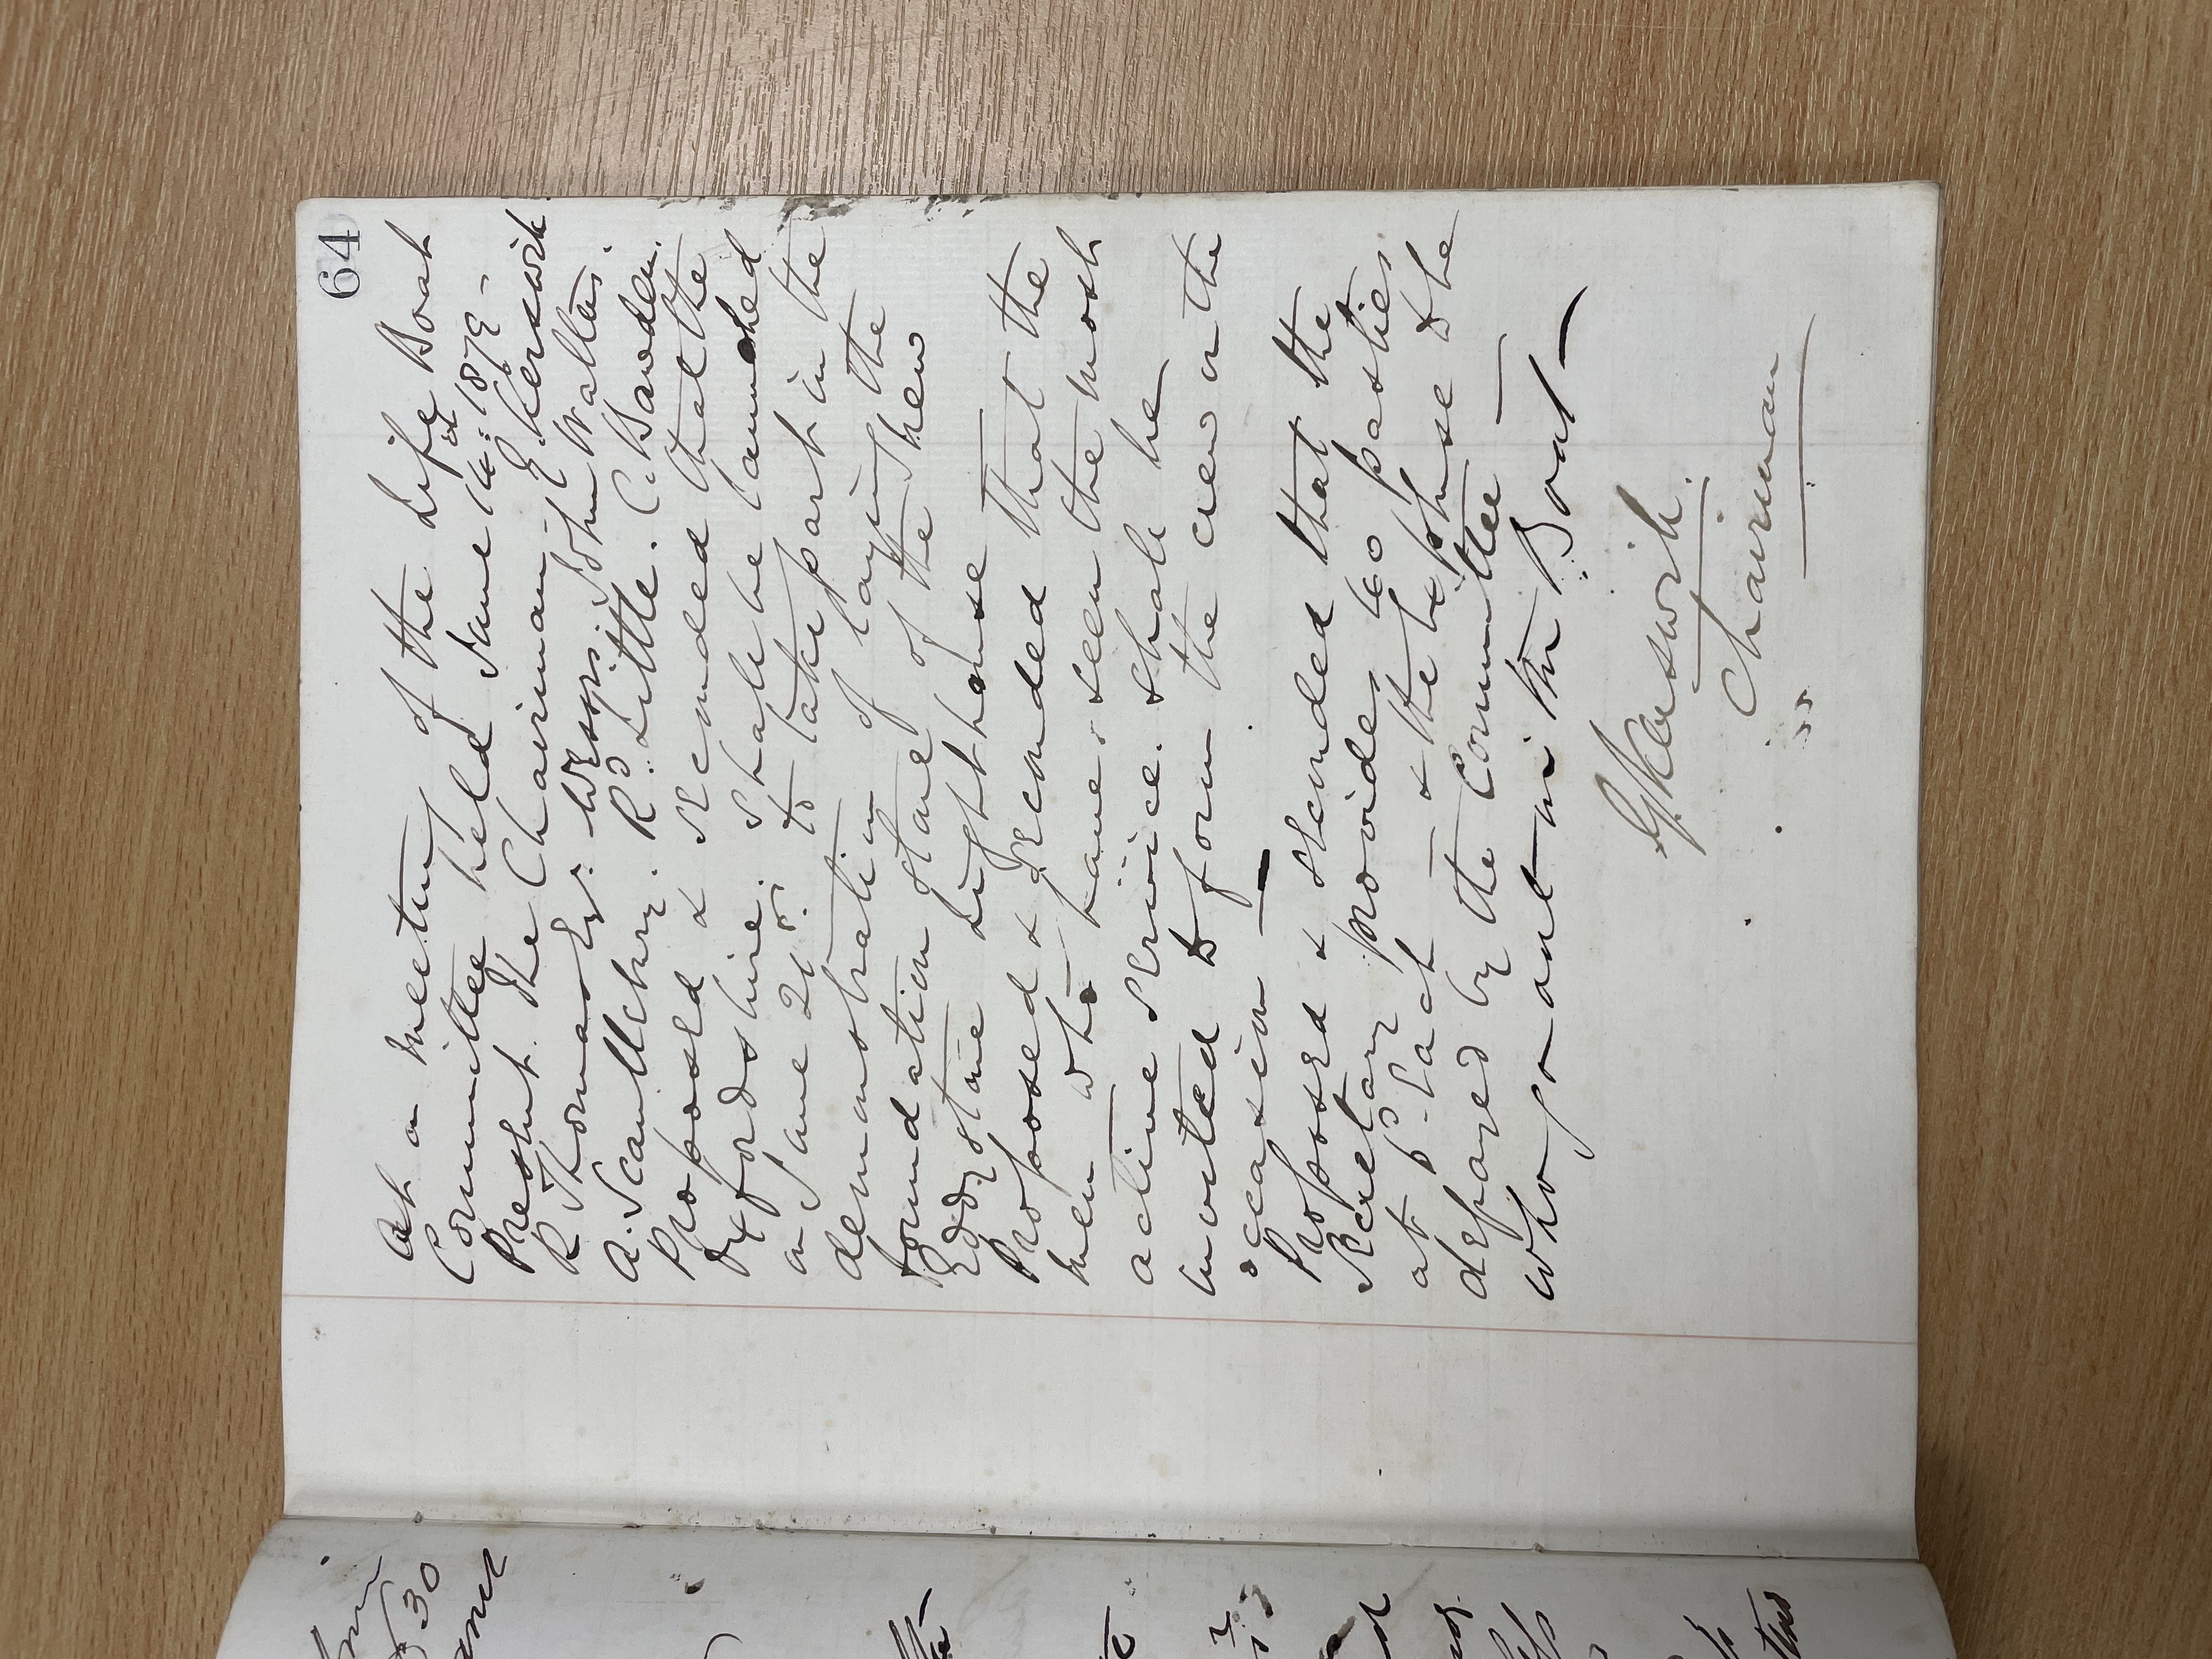 64
At a meeting of the Life Boat
Committee held June 16th 1879 -
Present. The Chairman - E Kerswill
R Thomas Esq: Messrs: John Walters.
A. Scantlebury. Rd. Little. C. Bowden.
Proposed & Seconded that the
Oxfordshire. Shall be launched
on June 21st: to take part in the
demonstration of laying the
foundation stone of the new
Eddystone Lighthouse
Proposed & Seconded that the
men who have seen the most
active Service. shall be
invited to form the crew on the
occasion —
Proposed & Seconded that the
Secretary provides 60 pasties
at 6d each & the expense to be
defrayed by the Committee —
who go out in the Boat —
Kerswill.
Chairman
30